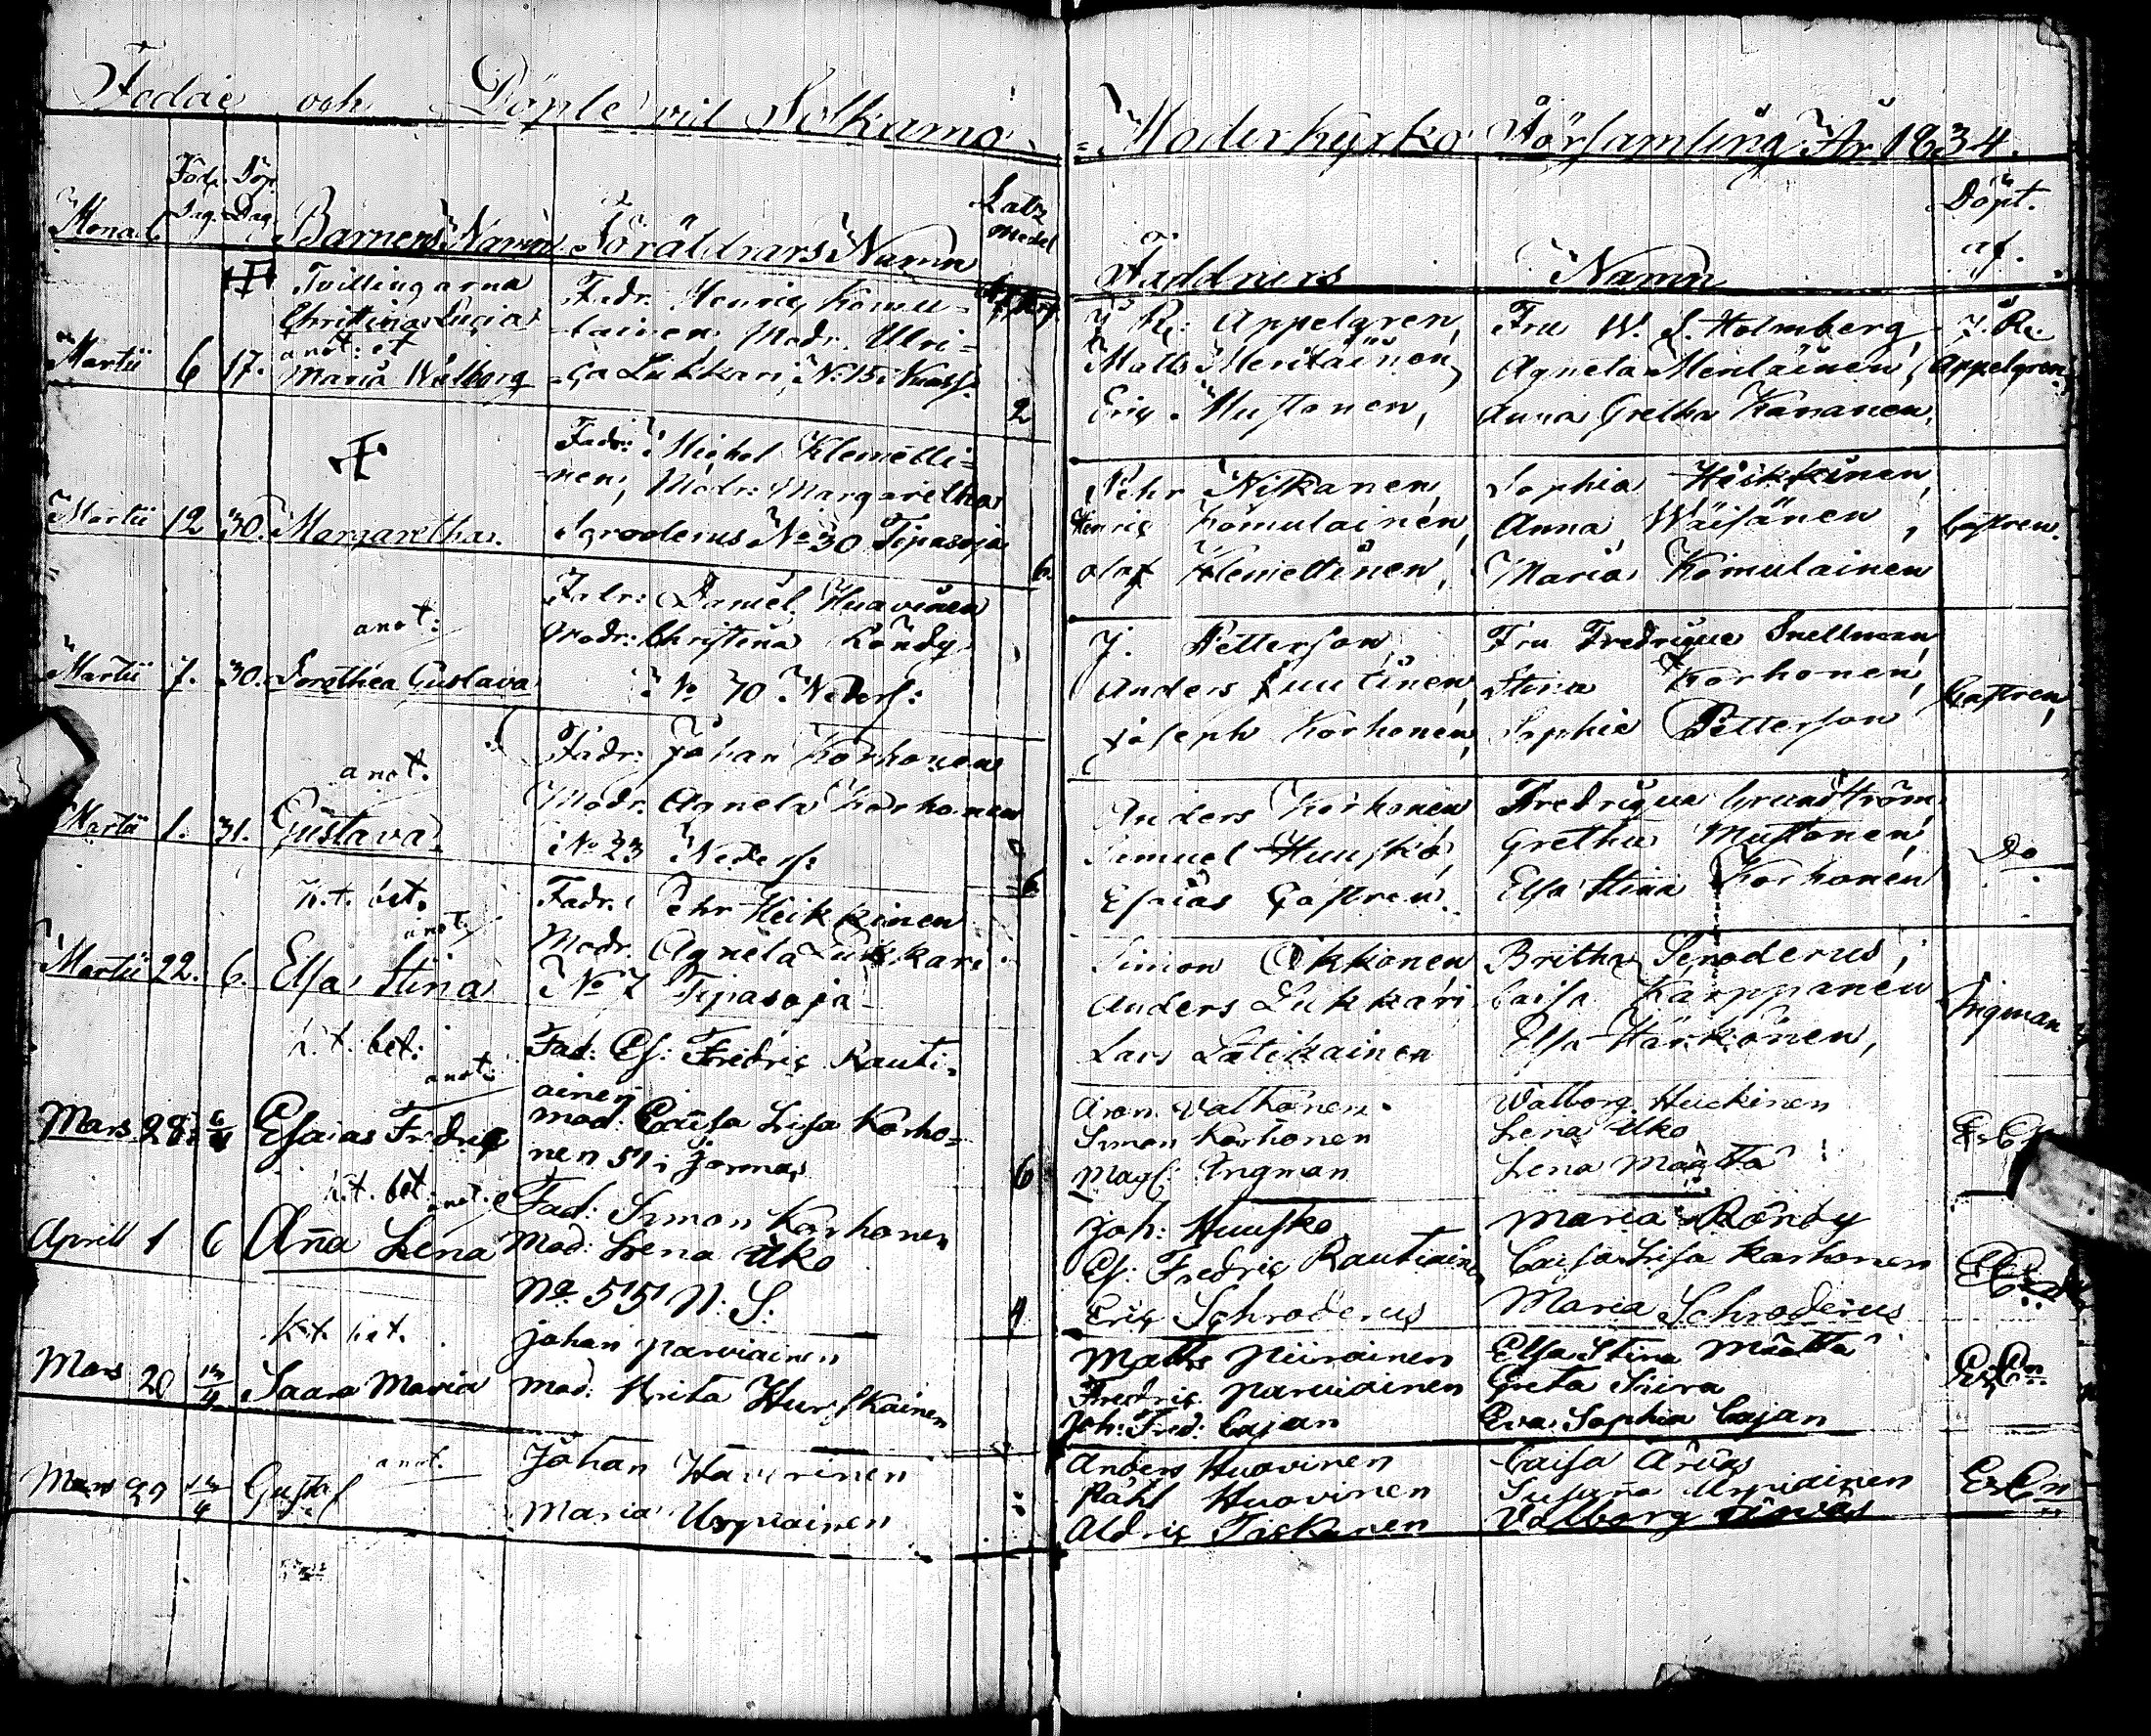 Födde och Döpte vid Sotkamo Moderkyrko Församling År 1834.
Månad. Föd. Dag. Döp. Dag. Barnens Namn Föräldrars Namn
Faddrars Namn Döpt. af.
Tvillingarna
Christina Lucia
anot: et
Martii 6 17. Maria Walborg
Fadr. Henric Komu-
lainen, Modr. Ulri-
ca Lukkari, No 15
2
J. R. Appelgren, Fru W. S. Holmberg, J. R.
Matts Meriläinen, Agneta Meriläinen, Appelgren
Eric Mustonen, Anna Gretha Kananen,
Martii 12 30. Margaretha.
Fadr: Michel Klemetti-
nen, Modr: Margaretha
Sgroderus No 30 Tipasoja
6.
Pehr Niskanen, Sophia Heikkinen,
Henric Komulainen, Anna Wäisänen, Castren.
Olof Klemettinen, Maria Komulainen
anot:
Martii 7. 30. Dorothea Gustava
Fadr: Daniel Huovinen
Modr: Christina Röndy
No 70 Neders:
J. Petterson, Fru Fredrique Snellman,
Anders Luutinen, Stina Korhonen,
Joseph Korhonen, Sophia Petterson Castren,
anot.
Martii 1. 31. Gustava.
Fadr: Johan Korhonen
Modr. Agneta Korhonen
No 23 Neders:
6
Anders Korhonen Fredrique Grundström,
Samuel Huusko, Gretha Mustonen, Do
Esaias Castren. Elsa Stina Korhonen
k.t. bet.
anot.
Martii 22. 6. Elsa Stina
Fadr. Pehr Heikkinen
Modr. Agneta Lukkari
No 7 Tipasoja
Simon Okkonen Britha Sgroderus,
Anders Lukkari Caisa Karppanen
Lars Lätikainen Elsa Härkönen, Ingman
k.t. bet:
anot:
Mars 28. 6/4 Esaias Fredric
Fad: Es: Fredric Rauti-
ainen
mod: Caisa Lisa Korho-
nen 51 i Jormas
6
Aron Valkonen. Walborg Huckinen
Simon Korhonen Lena Uko
Mag: Ingman Lena Määttä
k.t. bet.
anot.
Aprill 1 6 Aña Lena
Fad: Simon Korhonen
Mod: Lena Uko
No. 55 N: S:
4
Joh: Huusko Maria Röndy
Es: Fredric Rautiainen Caisa Lisa Korhonen
Eric Schroderus Maria Schroderus
k.t. bet.
Mars 20 13/4 Saara Maria
Johan Parviainen
Mod: Brita Hurskainen
Matts Piirainen Elsa Stina Määttä
Fredric Parviainen Greta Siira
Joh: Fred: Cajan Eva Sophia Cajan
anot.
Mars 29 13/4 Gustaf
Johan Haverinen
Maria Urpiainen
Anders Huovinen Caisa Arvas
Påhl Huovinen Susaña Urpiainen
Aldric Tiskanen Valborg Arvas